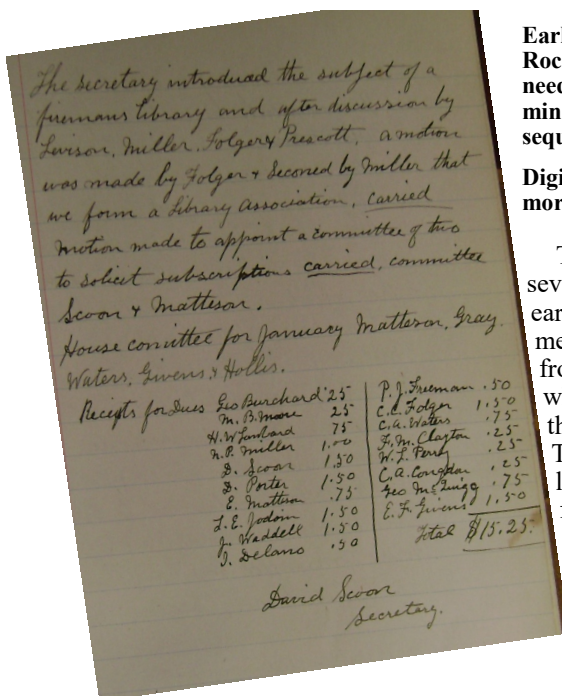 The secretary introduced the subject of a
firemans Library and after discussion by
Levison, Miller, Folger & Prescott, a motion
was made by Folger & Seconed by Miller that
we form a Library Association, carried
Motion made to appoint a committee of two
to solicit subscriptions carried, committee
Scoon & Matteson.
House comittee for January Matteson, Gray.
Waters, Givens, & Hollis.
Receipts for Dues Geo Burchard 25
M. B. Moore 25
H. W. Lombard 75
N. P. Miller 1.00
D. Scoon 1.50
D. Porter 1.50
E. Matteson .75
L. E. Jodoin 1.50
J. Waddell 1.50
I. Delano .50
P. J. Freeman .50
C. C. Folger 1.50
C. A. Waters .75
F. M. Clayton .25
W. L. Perry .25
C. A. Congdon .25
Geo .75
E. F. Givens 1.50
Total $15.25
David Scoon
Secretary.
Earl
Roc
need
min
sequ
Digi
mor
T
sev
ear
me
fro
w
th
T
l